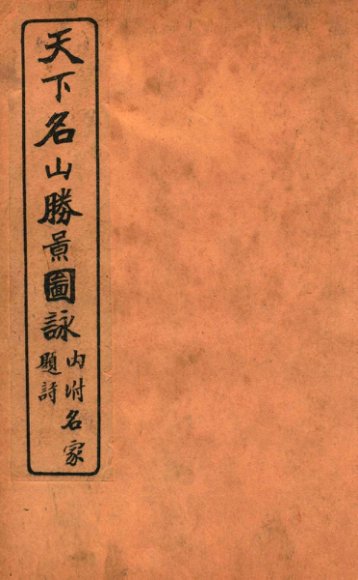 天下名山勝景圖詠
內附名家
題詩